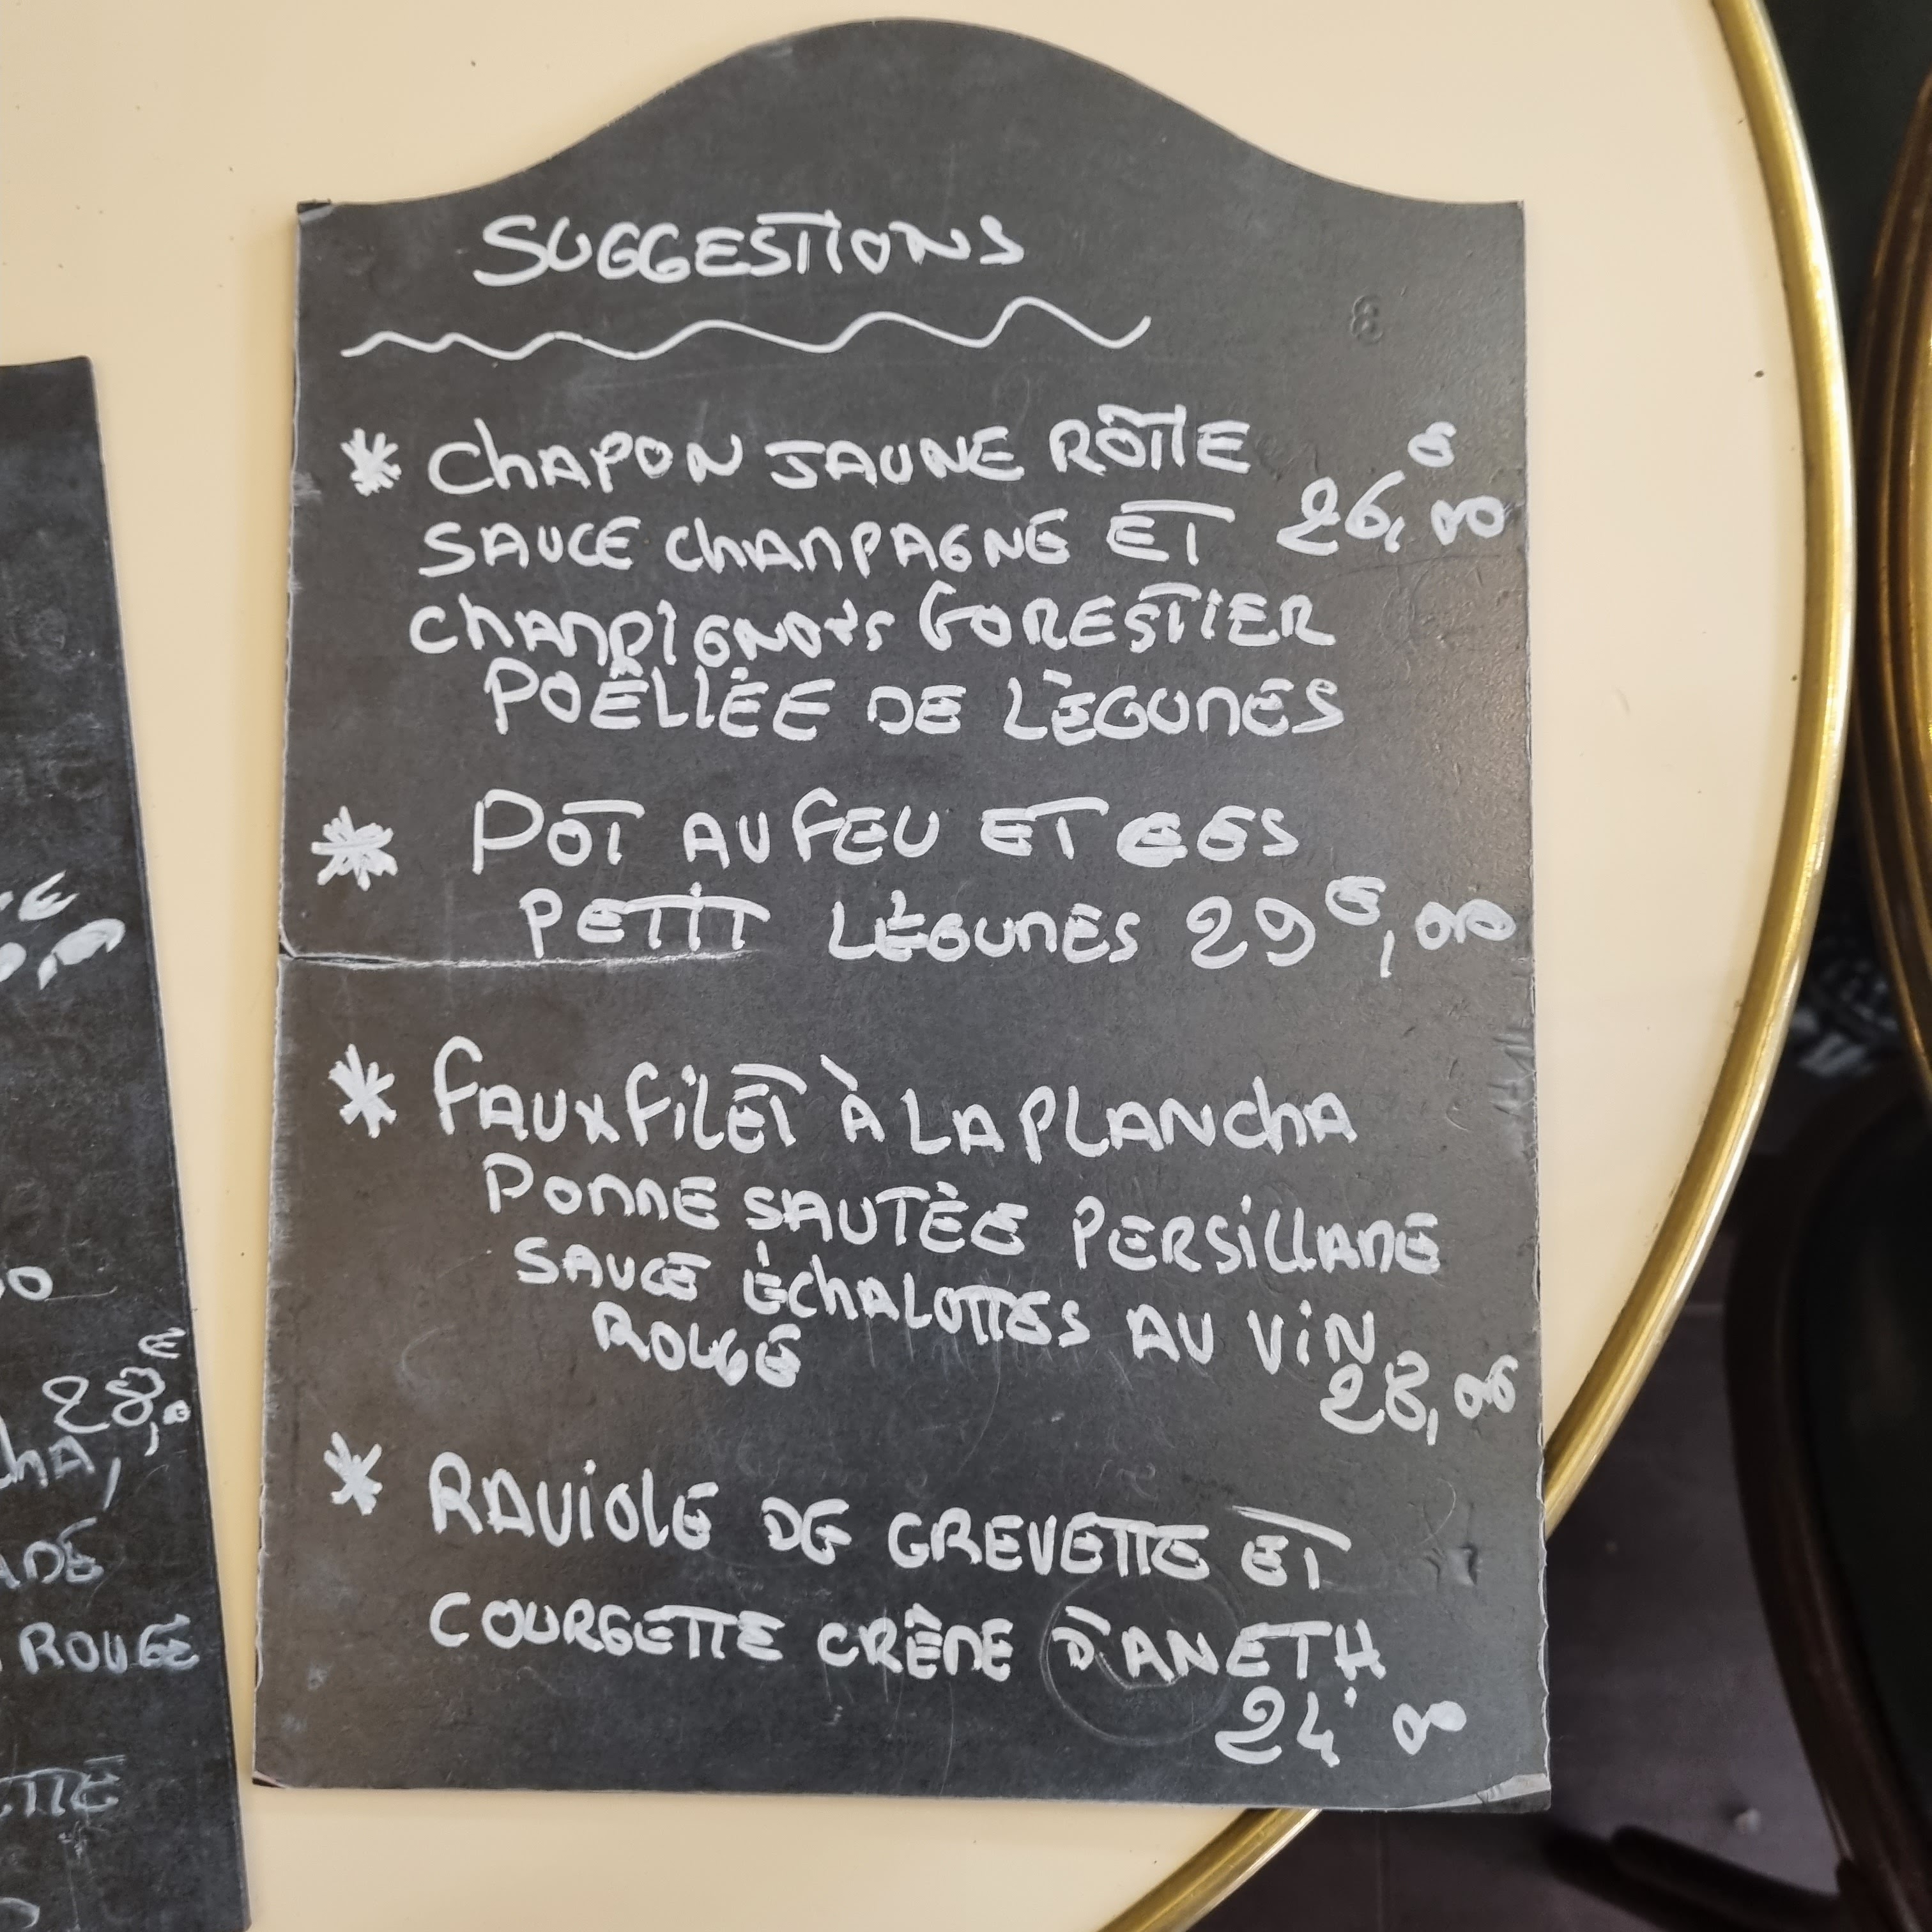 SUGGESTIONS
* CHAPON JAUNE RÔTIE
SAUCE CHAMPAGNE ET 26,€00
CHAMPIGNONS FORESTIER
POÊLLÉE DE LÉGUMES
* POT AU FEU ET CES
PETIT LÉGUMES 29€,00
* FAUX FILET À LA PLANCHA
POMME SAUTÉE PERSILLADE
SAUCE ÉCHALOTTES AU VIN
ROUGE
28,00
* RAVIOLE DE CREVETTE ET
COURGETTE CRÊME D'ANETH
24,00
28,€
CHA,
ADE
ROUGE
ETTE